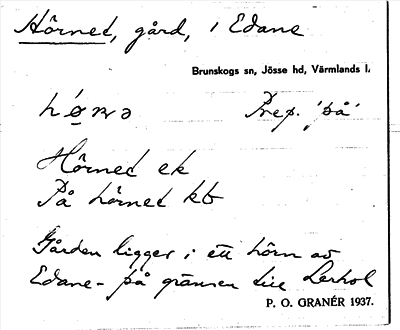 Hörnet, gård, i Edane
Brunskogs sn, Jösse hd, Värmlands l.
hǿɳə Prep. 'på'
Hörnet ek
På hörnet kb
Gården ligger i ett hörn av
Edane - på gränsen till Lerhol
P. O. GRANÉR 1937.